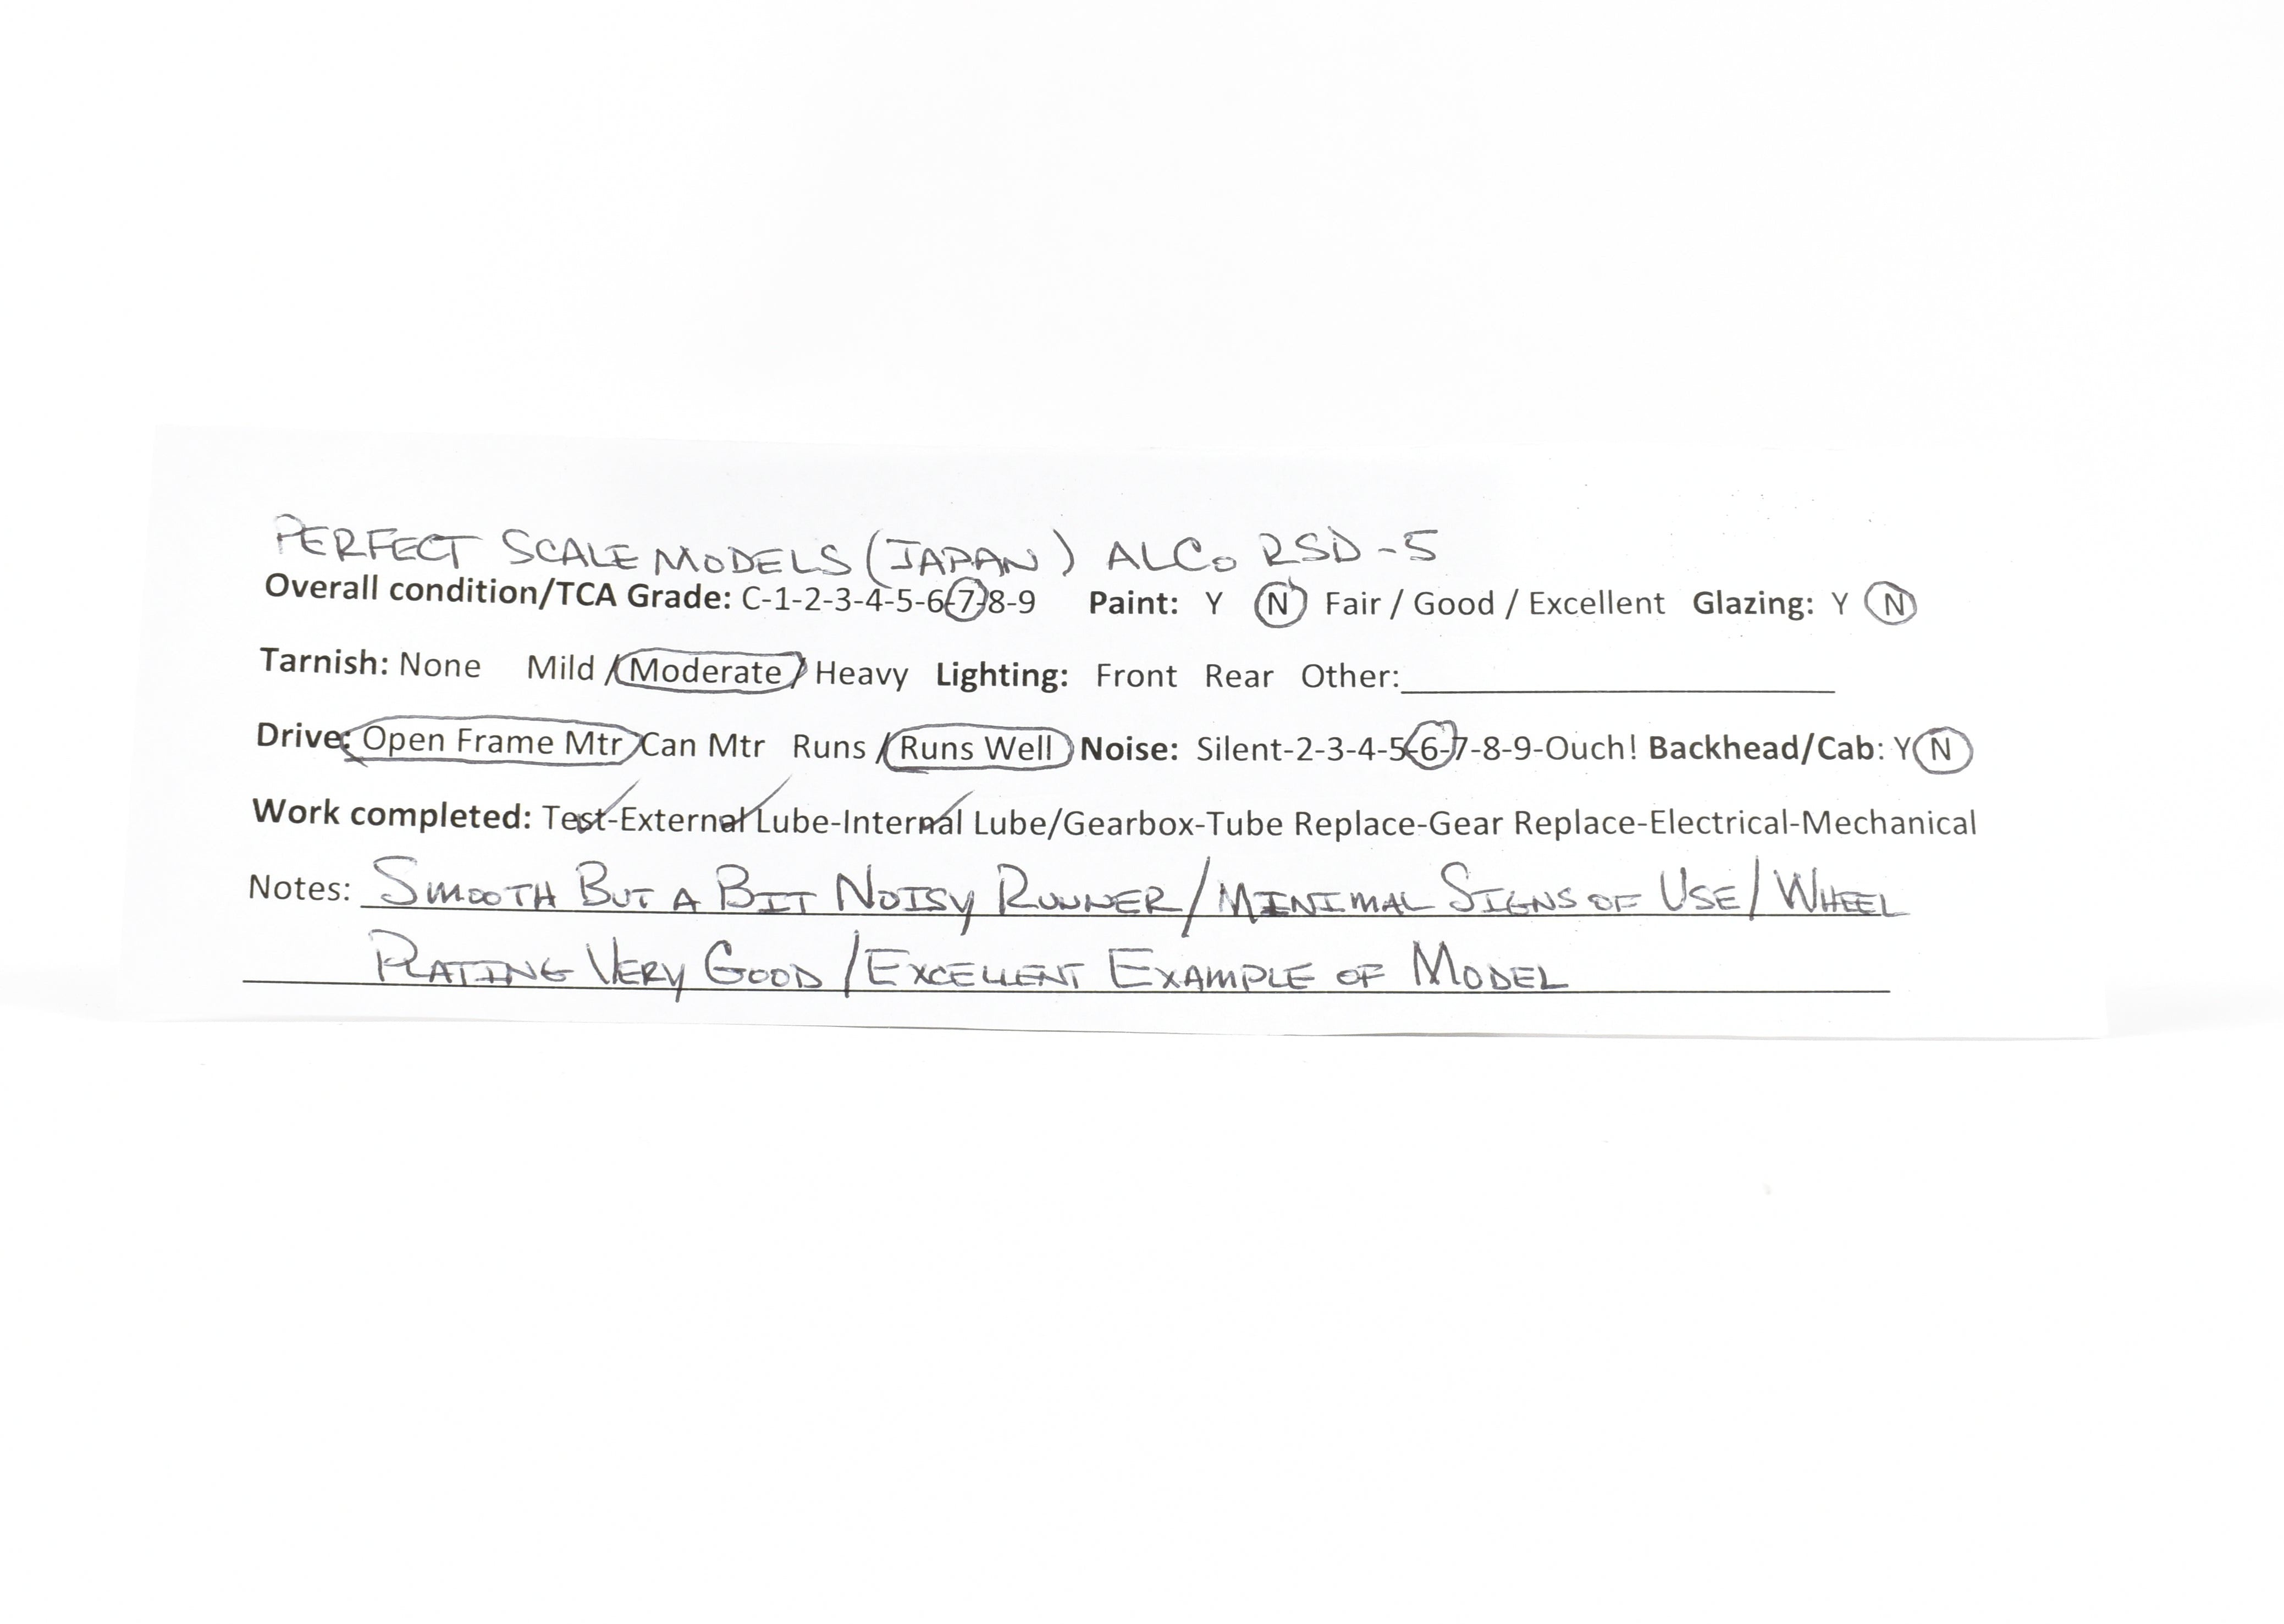 PERFECT SCALE MODELS (JAPAN) ALCo RSD-5
Overall condition/TCA Grade: C-1-2-3-4-5-6-7-8-9 Paint: Y N Fair / Good / Excellent Glazing: Y N
Tarnish: None Mild / Moderate / Heavy Lighting: Front Rear Other:
Drive: Open Frame Mtr Can Mtr Runs / Runs Well Noise: Silent-2-3-4-5-6-7-8-9-Ouch! Backhead/Cab: Y N
Work completed: Test-External Lube-Internal Lube/Gearbox-Tube Replace-Gear Replace-Electrical-Mechanical
Notes: SMOOTH BUT A BIT NOISY RUNNER/MINIMAL SIGNS OF USE/WHEEL
PLATING VERY GOOD/EXCELLENT EXAMPLE OF MODEL